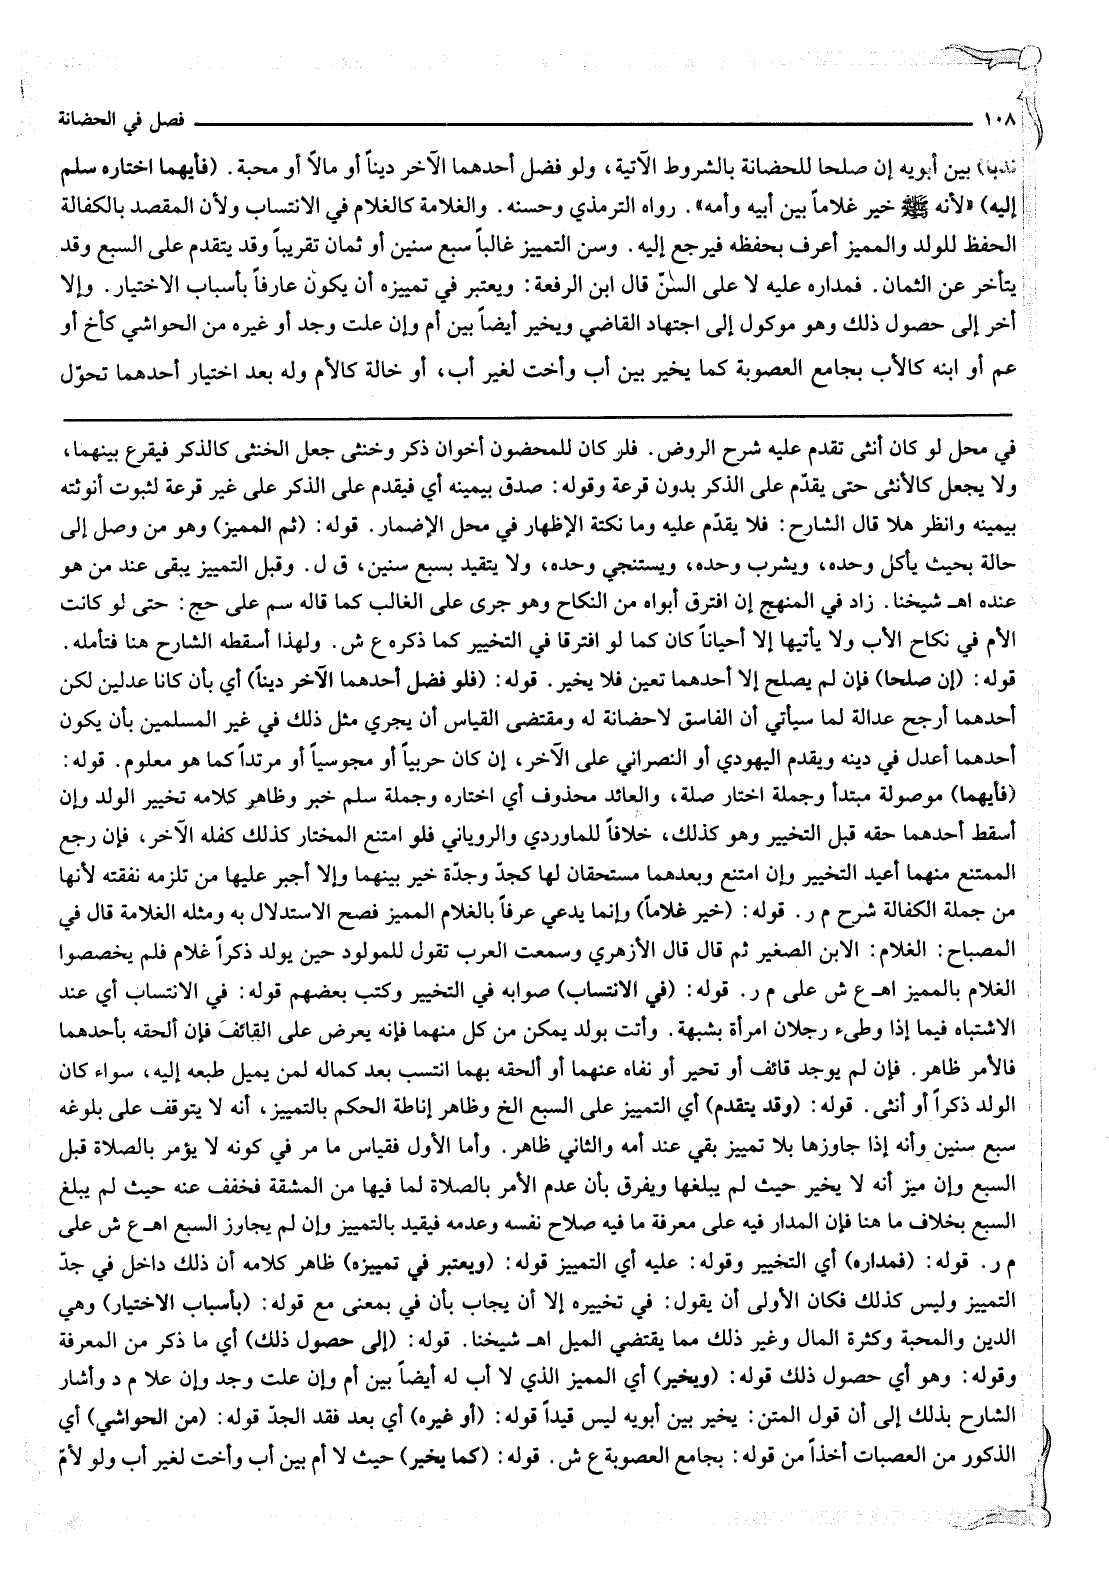 ١٠٨ فصل في الحضانة
ندبا) بين أبويه إن صلحا للحضانة بالشروط الآتية، ولو فضل أحدهما الآخر ديناً أو مالاً أو محبة. (فأيهما اختاره سلم
إليه) «لأنه ﷺ خير غلاماً بين أبيه وأمه». رواه الترمذي وحسنه. والغلامة كالغلام في الانتساب ولأن المقصد بالكفالة
الحفظ للولد والمميز أعرف بحفظه فيرجع إليه. وسن التمييز غالباً سبع سنين أو ثمان تقريباً وقد يتقدم على السبع وقد
يتأخر عن الثمان. فمداره عليه لا على السنّ قال ابن الرفعة: ويعتبر في تمييزه أن يكون عارفاً بأسباب الاختيار. وإلا
أخر إلى حصول ذلك وهو موكول إلى اجتهاد القاضي ويخير أيضاً بين أم وإن علت وجد أو غيره من الحواشي كأخ أو
عم أو ابنه كالأب بجامع العصوبة كما يخير بين أب وأخت لغير أب، أو خالة كالأم وله بعد اختيار أحدهما تحوّل
في محل لو كان أنثى تقدم عليه شرح الروض. فلو كان للمحضون أخوان ذكر وخنثى جعل الخنثى كالذكر فيقرع بينهما،
ولا يجعل كالأنثى حتى يقدّم على الذكر بدون قرعة وقوله: صدق بيمينه أي فيقدم على الذكر على غير قرعة لثبوت أنوثته
بيمينه وانظر هلا قال الشارح: فلا يقدّم عليه وما نكتة الإظهار في محل الإضمار. قوله: (ثم المميز) وهو من وصل إلى
حالة بحيث يأكل وحده، ويشرب وحده، ويستنجي وحده، ولا يتقيد بسبع سنين، ق ل. وقبل التمييز يبقى عند من هو
عنده اهـ شيخنا. زاد في المنهج إن افترق أبواه من النكاح وهو جرى على الغالب كما قاله سم على حج: حتى لو كانت
الأم في نكاح الأب ولا يأتيها إلا أحياناً كان كما لو افترقا في التخيير كما ذكره ع ش. ولهذا أسقطه الشارح هنا فتأمله.
قوله: (إن صلحا) فإن لم يصلح إلا أحدهما تعين فلا يخير. قوله: (فلو فضل أحدهما الآخر ديناً) أي بأن كانا عدلين لكن
أحدهما أرجح عدالة لما سيأتي أن الفاسق لاحضانة له ومقتضى القياس أن يجري مثل ذلك في غير المسلمين بأن يكون
أحدهما أعدل في دينه ويقدم اليهودي أو النصراني على الآخر، إن كان حربياً أو مجوسياً أو مرتداً كما هو معلوم. قوله:
(فأيهما) موصولة مبتدأ وجملة اختار صلة، والعائد محذوف أي اختاره وجملة سلم خبر وظاهر كلامه تخيير الولد وإن
أسقط أحدهما حقه قبل التخيير وهو كذلك، خلافاً للماوردي والروياني فلو امتنع المختار كذلك كفله الآخر، فإن رجع
الممتنع منهما أعيد التخيير وإن امتنع وبعدهما مستحقان لها كجدّ وجدّة خير بينهما وإلا أجبر عليها من تلزمه نفقته لأنها
من جملة الكفالة شرح م ر. قوله: (خير غلاماً) وإنما يدعى عرفاً بالغلام المميز فصح الاستدلال به ومثله الغلامة قال في
المصباح: الغلام: الابن الصغير ثم قال قال الأزهري وسمعت العرب تقول للمولود حين يولد ذكراً غلام فلم يخصصوا
الغلام بالمميز اهـ ع ش على م ر. قوله: (في الانتساب) صوابه في التخيير وكتب بعضهم قوله: في الانتساب أي عند
الاشتباه فيما إذا وطىء رجلان امرأة بشبهة. وأتت بولد يمكن من كل منهما فإنه يعرض على القائف فإن ألحقه بأحدهما
فالأمر ظاهر. فإن لم يوجد قائف أو تحير أو نفاه عنهما أو ألحقه بهما انتسب بعد كماله لمن يميل طبعه إليه، سواء كان
الولد ذكراً أو أنثى. قوله: (وقد يتقدم) أي التمييز على السبع الخ وظاهر إناطة الحكم بالتمييز، أنه لا يتوقف على بلوغه
سبع سنين وأنه إذا جاوزها بلا تمييز بقي عند أمه والثاني ظاهر. وأما الأول فقياس ما مر في كونه لا يؤمر بالصلاة قبل
السبع وإن ميز أنه لا يخير حيث لم يبلغها ويفرق بأن عدم الأمر بالصلاة لما فيها من المشقة فخفف عنه حيث لم يبلغ
السبع بخلاف ما هنا فإن المدار فيه على معرفة ما فيه صلاح نفسه وعدمه فيقيد بالتمييز وإن لم يجاوز السبع اهـ ع ش على
م ر. قوله: (فمداره) أي التخيير وقوله: عليه أي التمييز قوله: (ويعتبر في تمييزه) ظاهر كلامه أن ذلك داخل في جدّ
التمييز وليس كذلك فكان الأولى أن يقول: في تخييره إلا أن يجاب بأن في بمعنى مع قوله: (بأسباب الاختيار) وهي
الدين والمحبة وكثرة المال وغير ذلك مما يقتضي الميل اهـ شيخنا. قوله: (إلى حصول ذلك) أي ما ذكر من المعرفة
وقوله: وهو أي حصول ذلك قوله: (ويخير) أي المميز الذي لا أب له أيضاً بين أم وإن علت وجد وإن علا م د وأشار
الشارح بذلك إلى أن قول المتن: يخير بين أبويه ليس قيداً قوله: (أو غيره) أي بعد فقد الجدّ قوله: (من الحواشي) أي
الذكور من العصبات أخذاً من قوله: بجامع العصوبة ع ش. قوله: (كما يخير) حيث لا أم بين أب وأخت لغير أب ولو لأمّ